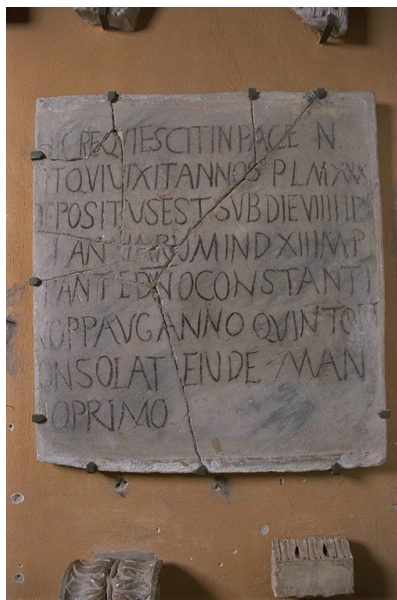 HIC REQVIESCIT IN PACE N
ITQVIVIXIT ANNOS PLM XXX
DEPOSITVS EST SVB DIE VIIII ID
IANVARIVM IND XIII IMP
TANTE DN NO CONSTANTI
OPP AVG ANNO QVINTO ET
ONSOLAT EIVDE MAN
O PRIMO